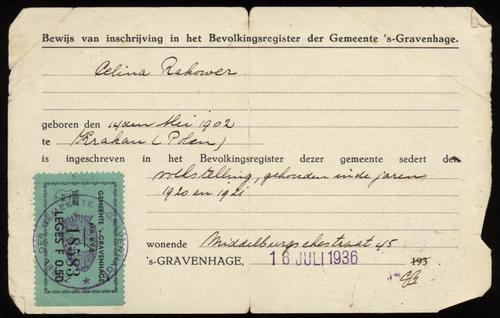 Bewijs van inschrijving in het Bevolkingsregister der Gemeente 's-Gravenhage.
Celina Rakower
geboren den 14den Mei 1902
te Krakau (Polen)
is ingeschreven in het Bevolkingsregister dezer gemeente sedert den
volkstelling, gehouden in de jaren
1920 en 1921
wonende Middelburgschestraat 45
's-GRAVENHAGE, 16 JULI 1936 193
GEMEENTE 's-GRAVENHAGE
18583
LEGES F 0.50